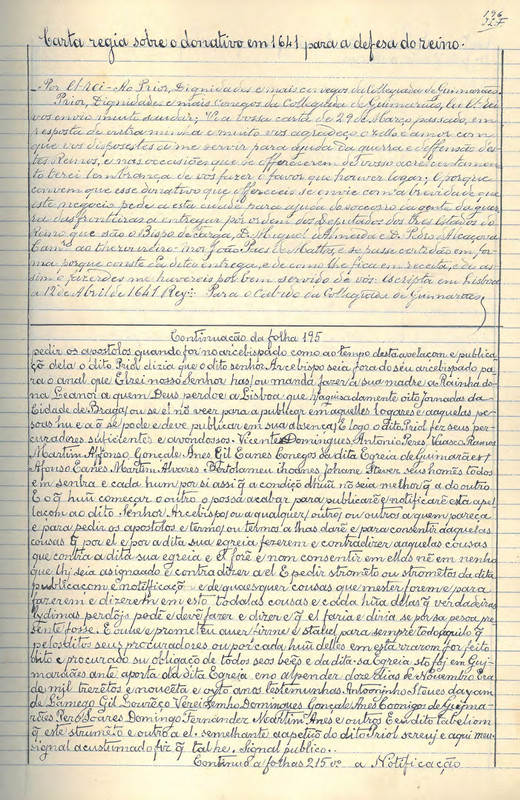 196
Carta regia sobre o donativo em 1641 para a defesa do reino.
Por El-rei - Ao Prior, Dignidades e mais conegos da Collegiada de Guimarães.
Prior, Dignidades e mais Conegos da Collegiada de Guimarães, Eu El-rei
vos envio muito saudar; Vi a vossa carta de 29 de Março passado, em
resposta de outra minha e muito vos agradeço o zello e amor com
que vos dispozestes a me servir para ajuda da guerra e deffensão des-
tes Reinos, e nas occasiões que se offerecerem de vosso acrescentamen-
to terei lembrança de vos fazer o favor que houver logar; E porque
convem que esse donativo que offereceis se envie com a brevidade que
este negocio pede a esta cidade para ajuda do soccorro da gente da guer-
ra das fronteiras a entregar por ordem dos Deputados dos tres Estados do
Reino que são o Bispo de Targa, D. Miguel d'Almeida e D. Pedro d'Alcaçova
ao thezoureiro-mór João Paes de Mattos, e se passe certidão em for-
ma porque conste da dita entrega, e de como lhe fica em receita, e de as-
sim o fazerdes me haverei por bem servido de vós. Escripta em Lisboa
a 12 de Abril de 1641. Rey. Para o Cabido da Collegiada de Guimarães
Continuação da folha 195
pedir os apostolos quando for no arcebispado como ao tempo desta apelaçom e publica-
çõ dela o dito Priol dizia que o dito senhor Arcebispo seia fora do séu arcebispado pa-
ra o anal que Elrei nosso Senhor has ou manda fazer a sua madre a Rainha do-
na Leanor a quem Deus perdoe a Lisboa que oito jornadas da
Cidade de Braga ou se el nõ veer para a publicar em aquelles logares e aquelas pe-
soas hu e a q se pode e deve publicar em sua absença; E logo o dito Priol fez seus per-
curadores suficientes e avondosos. Vicente Domingues, Antonio Anes, Vaasco Ramos
Martim Affonso, Gonçale Anes, Gil Eanes conegos da dita Egreia de Guimarães e
Afonso Eanes, Martim Alvares, Bertolameu ihoanes, Johane Stevez seus homẽs todos
em senbra e cada hum por si assi q a condiçõ dhuũ nõ seia melhor q a do outro
E o q huũ começar o outro o possa acabar para publicarẽ e notificarẽ esta ape-
laçom ao dito Senhor Arcebispo, ou a qualquer outro, ou outros a quem pareça
e para pedir os apostolos e termo, ou termos a lhas darẽ e para consentir aaquelas
cousas q por el e por a dita sua egreia fezerem e contradizer aaquelas cousas
que contra a dita sua egreia e el forẽ e nom consentir em ellas nẽ em nenho
que lhi seia asignado e contradizer a el E pedir stromẽto ou stromẽtos da dita
publicaçom e notificaçõ e de quaesquer cousas que mester forem e para
fazerem e dizerem em esto todalas cousas e cada hũa delas q verdadeiros
lydimos perdõjs pode e deve fazer e dizer e q el faria e diria se por sa pesoa pre-
sente fosse. E ouve e prometeu auer firme e stabel para sempre todo aquilo q
pelos ditos seus procuradores ou por cada huũ delles em esta rrazom for feito
dito e procurado su obligaço de todos seos beẽs e da dita sa Egreia sto foj em Gui-
marães ante a porta da dita Egreia eno alpender doze dias de Novembro era
de mil trezẽtos e noveẽta e oyto anos testemunhas Antooninho Steves dayam
de Lamego Gil Lourẽço Vereisemho Domingues Gonçale Anes Coonigo de Guima-
rães Pero Soares Domingo Fernandez Martim Anes e outros Eu o dito tabeliom
q este strumẽto e outro a el semelhante a apetiçõ do dito Priol screuj e aqui meu
signal acustumado fiz q tal he. Signal publico.
Continuo a folhas 215 vº a Notificação